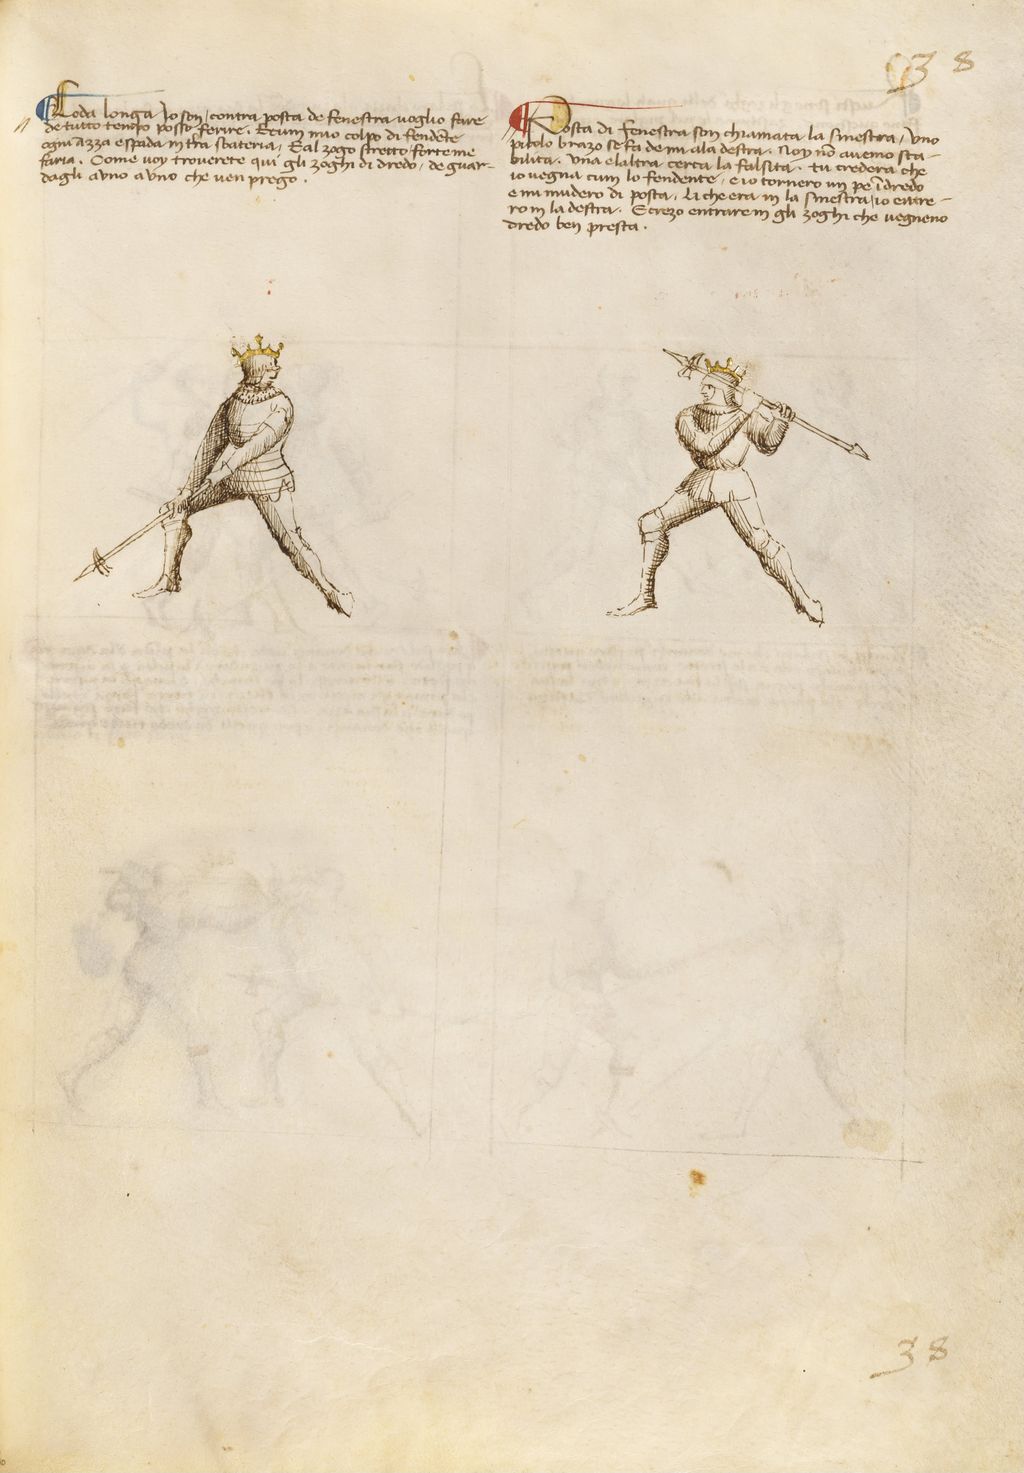 38
Coda longa Io son, contra posta de fenestra uoglio fare
de tutto tempo posso ferire. E cum mio colpo di fendēte
ogni Azza e spada in tra sbateria, E al zogo stretto forte me
faria. Come uoy trouerete qui gli zoghi di dredo, de guar-
dagli Auno Auno che uen prego.
Posta di fenestra son chiamata la sinestra, Vno
picolo brazo se fa de mi ala destra. Noy nō auemo sta-
bilita. Vna elaltra cerca la falsita. tu credera che
io uegna cum lo fendente, e io tornero un pe īdredo
e mi mudero di posta. Li che era in la sinestra, io entre-
ro in la destra. E crezo entrare in gli zoghi che uegneno
dredo ben presta.
38